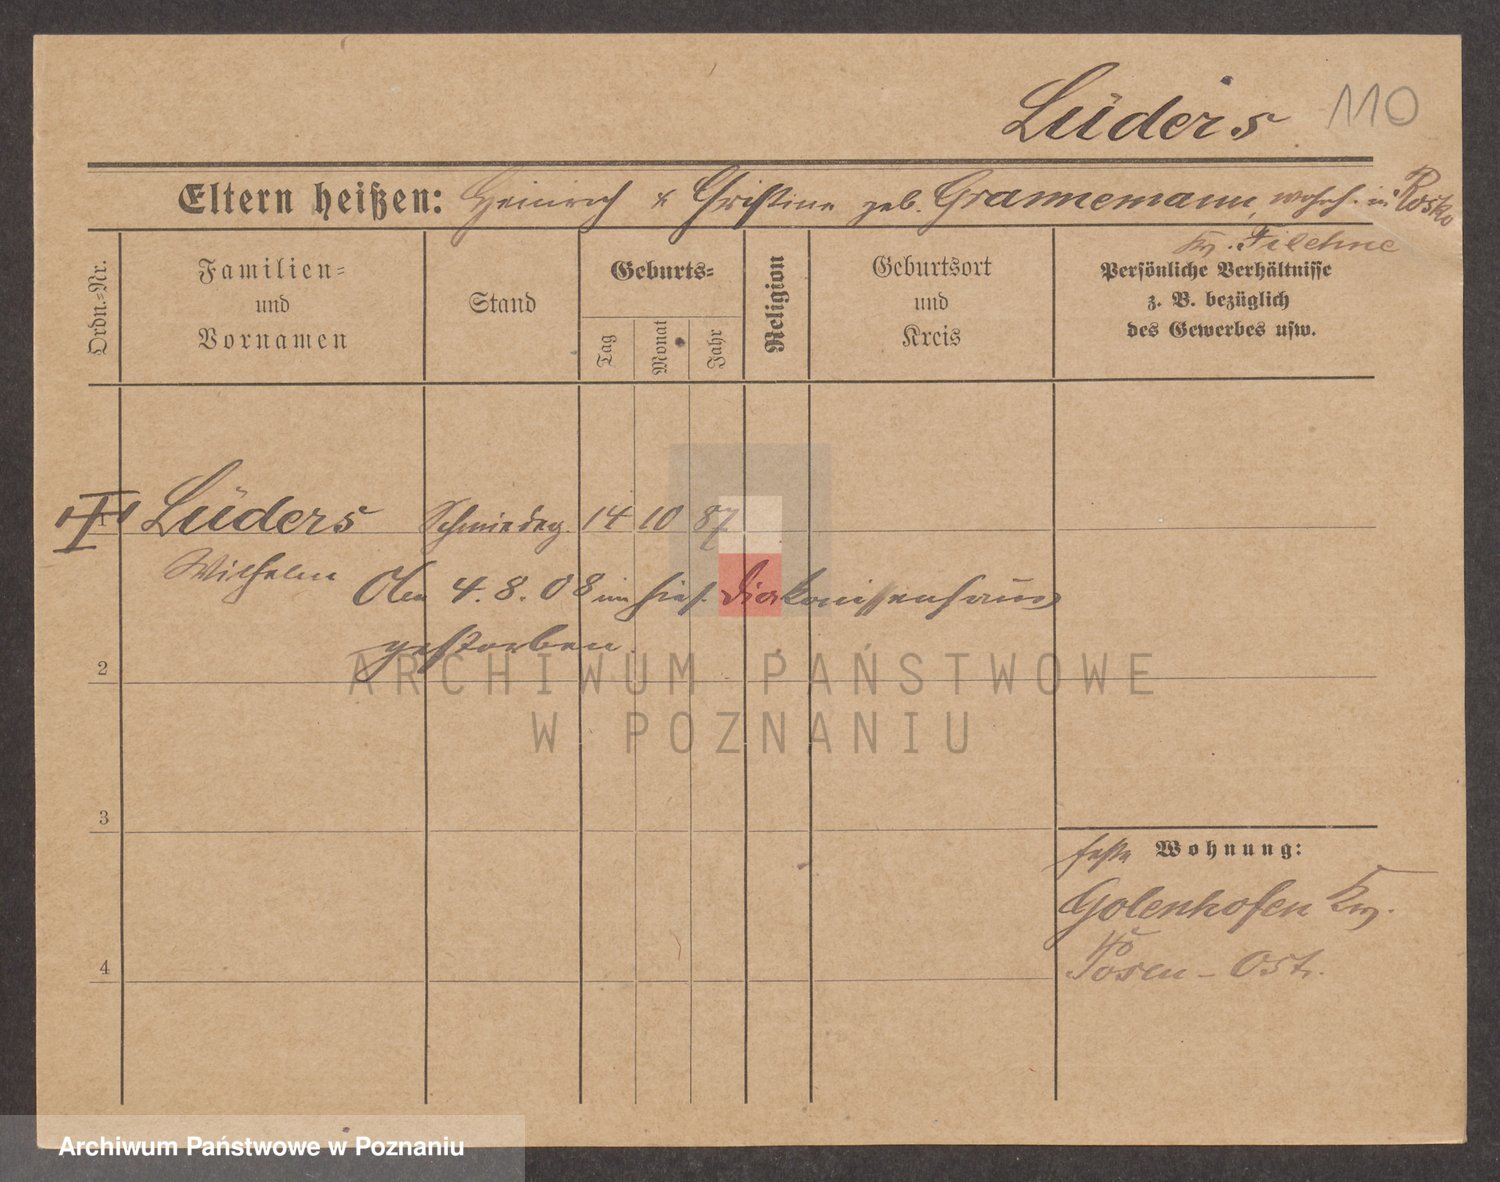 Lüders 110
Eltern heißen: Heinrich & Christine geb. Grannemann, wohnh. in Rosko
Kr. Filehne
Ordn.-Nr.
Familien-
und
Vornamen
Stand
Geburts-
Tag
Monat
Jahr
Religion
Geburtsort
und
Kreis
Persönliche Verhältnisse
z. B. bezüglich
des Gewerbes usw.
1 Lüders Schmiedeg. 14 10 87
Wilhelm
Am 4.8.08 im hies. Diakonissenhaus
gestorben.
2
ARCHIWUM PAŃSTWOWE
W POZNANIU
3
feste Wohnung:
Golenhofen Kr.
Posen-Ost.
4
Archiwum Państwowe w Poznaniu